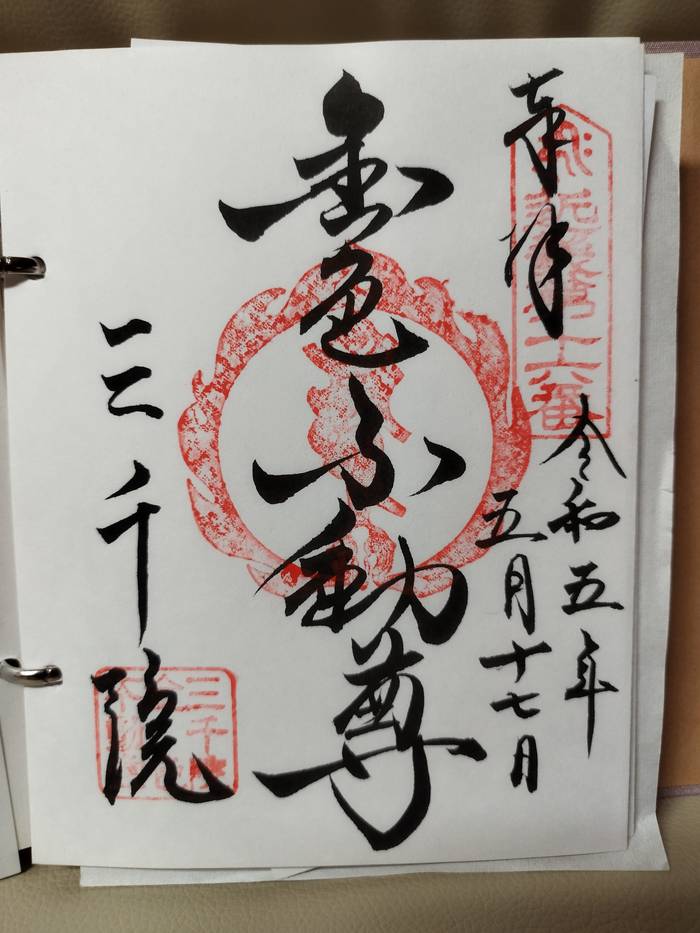 奉拝
近畿第十六番
令和五年
五月十七日
金色不動尊
三千院
三千院